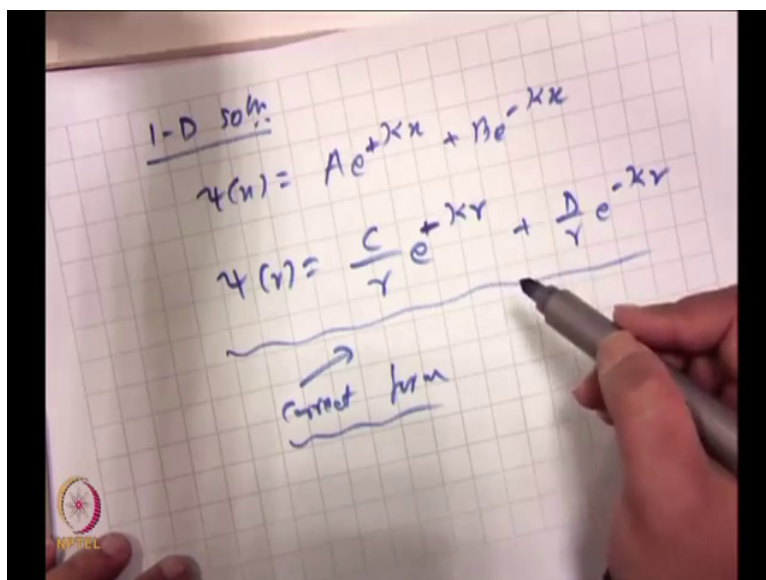 1-D soln.
ψ(x) = Ae^{+Kx} + Be^{-Kx}
ψ(r) = C/r e^{+Kr} + D/r e^{-Kr}
correct form
NPTEL